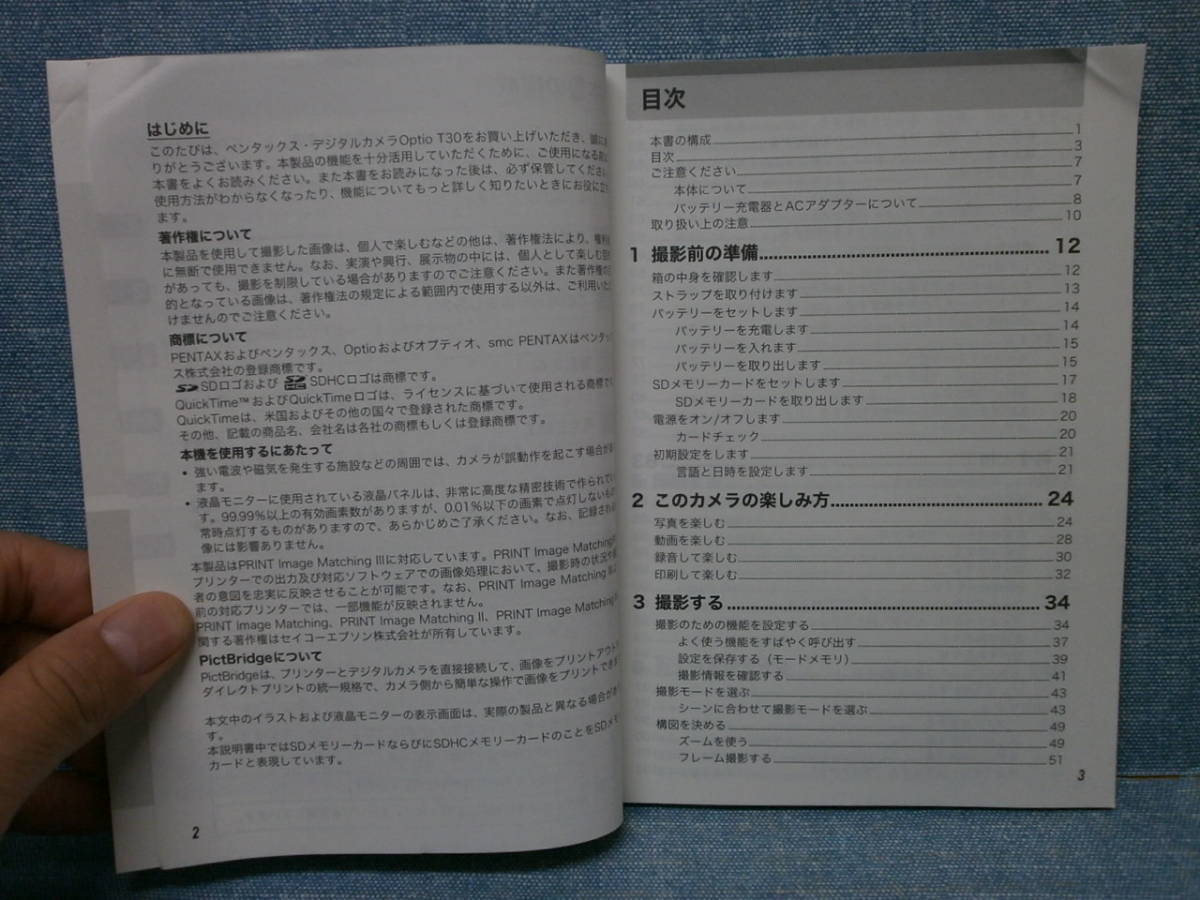 はじめに
このたびは、ペンタックス・デジタルカメラOptio T30をお買い上げいただき、誠にあ
りがとうございます。本製品の機能を十分活用していただくために、ご使用になる前に
本書をよくお読みください。また本書をお読みになった後は、必ず保管してください。
使用方法がわからなくなったり、機能についてもっと詳しく知りたいときにお役に立ち
ます。
著作権について
本製品を使用して撮影した画像は、個人で楽しむなどの他は、著作権法により、権利者
に無断で使用できません。なお、実演や興行、展示物の中には、個人として楽しむ目的
があっても、撮影を制限している場合がありますのでご注意ください。また著作権の目
的となっている画像は、著作権法の規定による範囲内で使用する以外は、ご利用いただ
けませんのでご注意ください。
商標について
PENTAXおよびペンタックス、Optioおよびオプティオ、smc PENTAXはペンタック
ス株式会社の登録商標です。
SDロゴおよび SDHCロゴは商標です。
QuickTime™およびQuickTimeロゴは、ライセンスに基づいて使用される商標です。
QuickTimeは、米国およびその他の国々で登録された商標です。
その他、記載の商品名、会社名は各社の商標もしくは登録商標です。
本機を使用するにあたって
• 強い電波や磁気を発生する施設などの周囲では、カメラが誤動作を起こす場合があり
ます。
• 液晶モニターに使用されている液晶パネルは、非常に高度な精密技術で作られていま
す。99.99%以上の有効画素数がありますが、0.01%以下の画素で点灯しないものや
常時点灯するものがありますので、あらかじめご了承ください。なお、記録される画
像には影響ありません。
本製品はPRINT Image Matching IIIに対応しています。PRINT Image Matching
プリンターでの出力及び対応ソフトウェアでの画像処理において、撮影時の状況や撮
者の意図を忠実に反映させることが可能です。なお、PRINT Image Matching
前の対応プリンターでは、一部機能が反映されません。
PRINT Image Matching、PRINT Image Matching II、PRINT Image Matching
関する著作権はセイコーエプソン株式会社が所有しています。
PictBridgeについて
PictBridgeは、プリンターとデジタルカメラを直接接続して、画像をプリントアウト
ダイレクトプリントの統一規格で、カメラ側から簡単な操作で画像をプリントできま
本文中のイラストおよび液晶モニターの表示画面は、実際の製品と異なる場合があ
す。
本説明書中ではSDメモリーカードならびにSDHCメモリーカードのことをSDメモ
カードと表現しています。
2
目次
本書の構成 1
目次 3
ご注意ください 7
本体について 7
バッテリー充電器とACアダプターについて 8
取り扱い上の注意 10
1 撮影前の準備 12
箱の中身を確認します 12
ストラップを取り付けます 13
バッテリーをセットします 14
バッテリーを充電します 14
バッテリーを入れます 15
バッテリーを取り出します 15
SDメモリーカードをセットします 17
SDメモリーカードを取り出します 18
電源をオン/オフします 20
カードチェック 20
初期設定をします 21
言語と日時を設定します 21
2 このカメラの楽しみ方 24
写真を楽しむ 24
動画を楽しむ 28
録音して楽しむ 30
印刷して楽しむ 32
3 撮影する 34
撮影のための機能を設定する 34
よく使う機能をすばやく呼び出す 37
設定を保存する（モードメモリ） 39
撮影情報を確認する 41
撮影モードを選ぶ 43
シーンに合わせて撮影モードを選ぶ 43
構図を決める 49
ズームを使う 49
フレーム撮影する 51
3